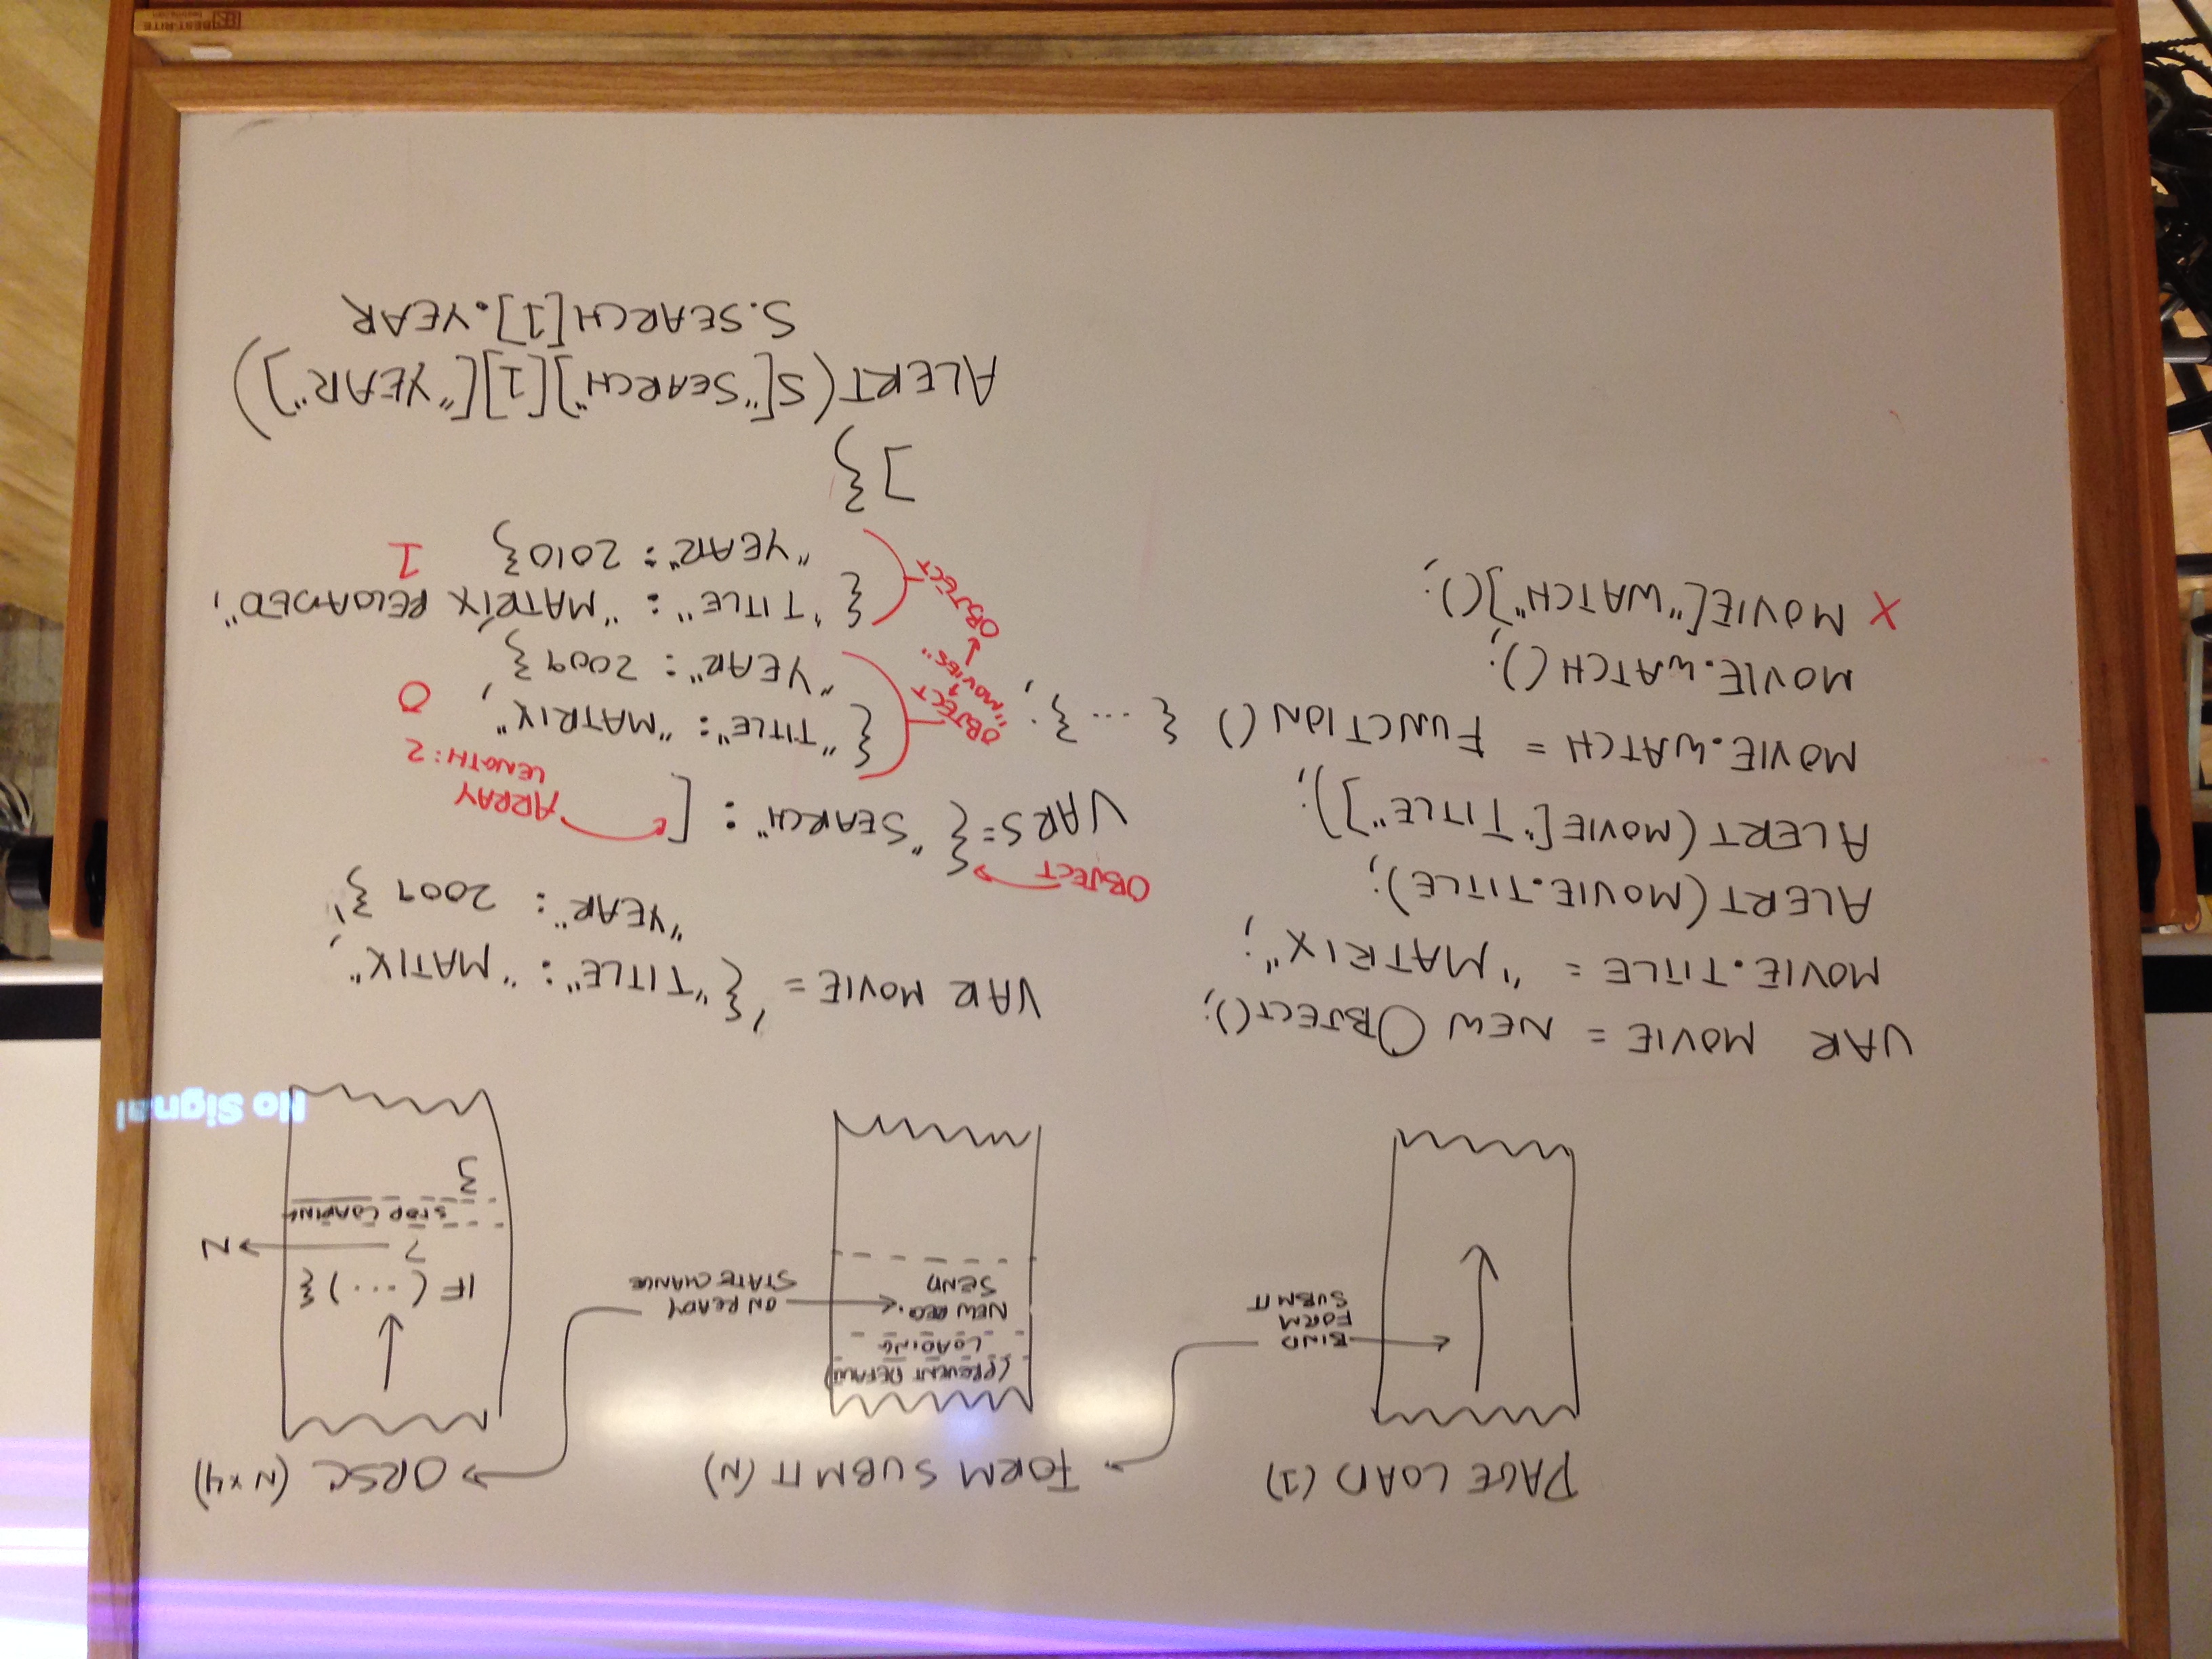 PAGE LOAD (1)
BIND
FORM
SUBMIT
FORM SUBMIT (N)
(PREVENT DEFAULT)
LOADING
NEW REQ.
SEND
ON READY
STATE CHANGE
ORSC (N×4)
IF (...) {
? → N
STOP LOADING
}
No Signal
VAR MOVIE = NEW OBJECT();
MOVIE.TITLE = "MATRIX";
ALERT(MOVIE.TITLE);
ALERT(MOVIE["TITLE"]);
MOVIE.WATCH = FUNCTION() { ... };
MOVIE.WATCH();
X MOVIE["WATCH"]();
VAR MOVIE = '{"TITLE": "MATIX",
"YEAR": 2009 }'
OBJECT
VAR S = { "SEARCH" : [
ARRAY
LENGTH: 2
OBJECT
"MOVIES"
OBJECT
{ "TITLE": "MATRIX", 0
"YEAR": 2009 }
{ 'TITLE" : "MATRIX RELOADED",
"YEAR": 2010 } 1
] }
ALERT(S["SEARCH"][1]["YEAR"])
S.SEARCH[1].YEAR
BEST-RITE